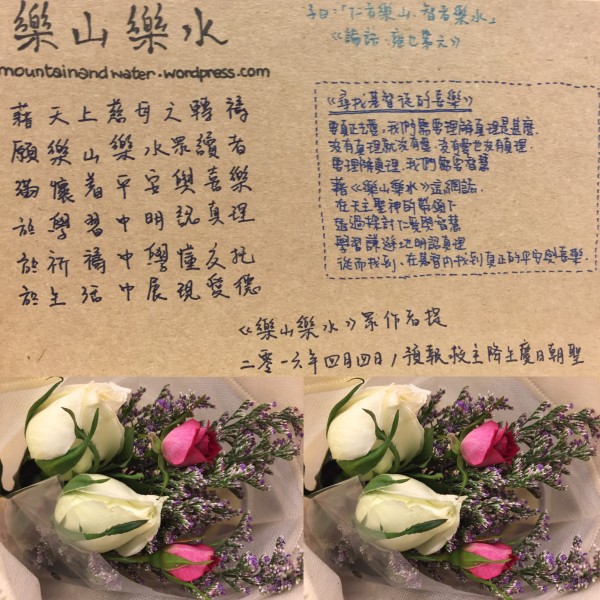 樂山樂水
mountainandwater.wordpress.com
子曰:「仁者樂山.智者樂水」
《論語.雍也第六》
藉天上慈母之轉禱
願樂山樂水眾讀者
滿懷着平安與喜樂
於學習中明認真理
於祈禱中學懂交托
於生活中展現愛德
《尋找基督徒的喜樂》
要真正去愛,我們需要理解真理是甚麼.
沒有真理就沒有愛.沒有愛也沒有真理.
要理解真理.我們需要智慧
藉《樂山樂水》這網誌.
在天主聖神的帶領下
透過探討仁愛與智慧
學習謙遜地明認真理
從而找到.在基督內找到真正的平安與喜樂.
《樂山樂水》眾作者提
二零一六年四月四日,預報救主降生慶日朝聖